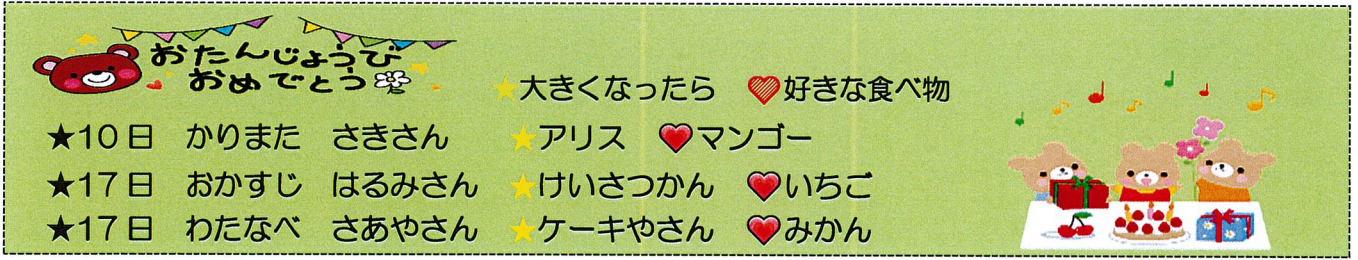 おたんじょうび
おめでとう
★大きくなったら ♥好きな食べ物
★10日 かりまた さきさん ★アリス ♥マンゴー
★17日 おかすじ はるみさん ★けいさつかん ♥いちご
★17日 わたなべ さあやさん ★ケーキやさん ♥みかん